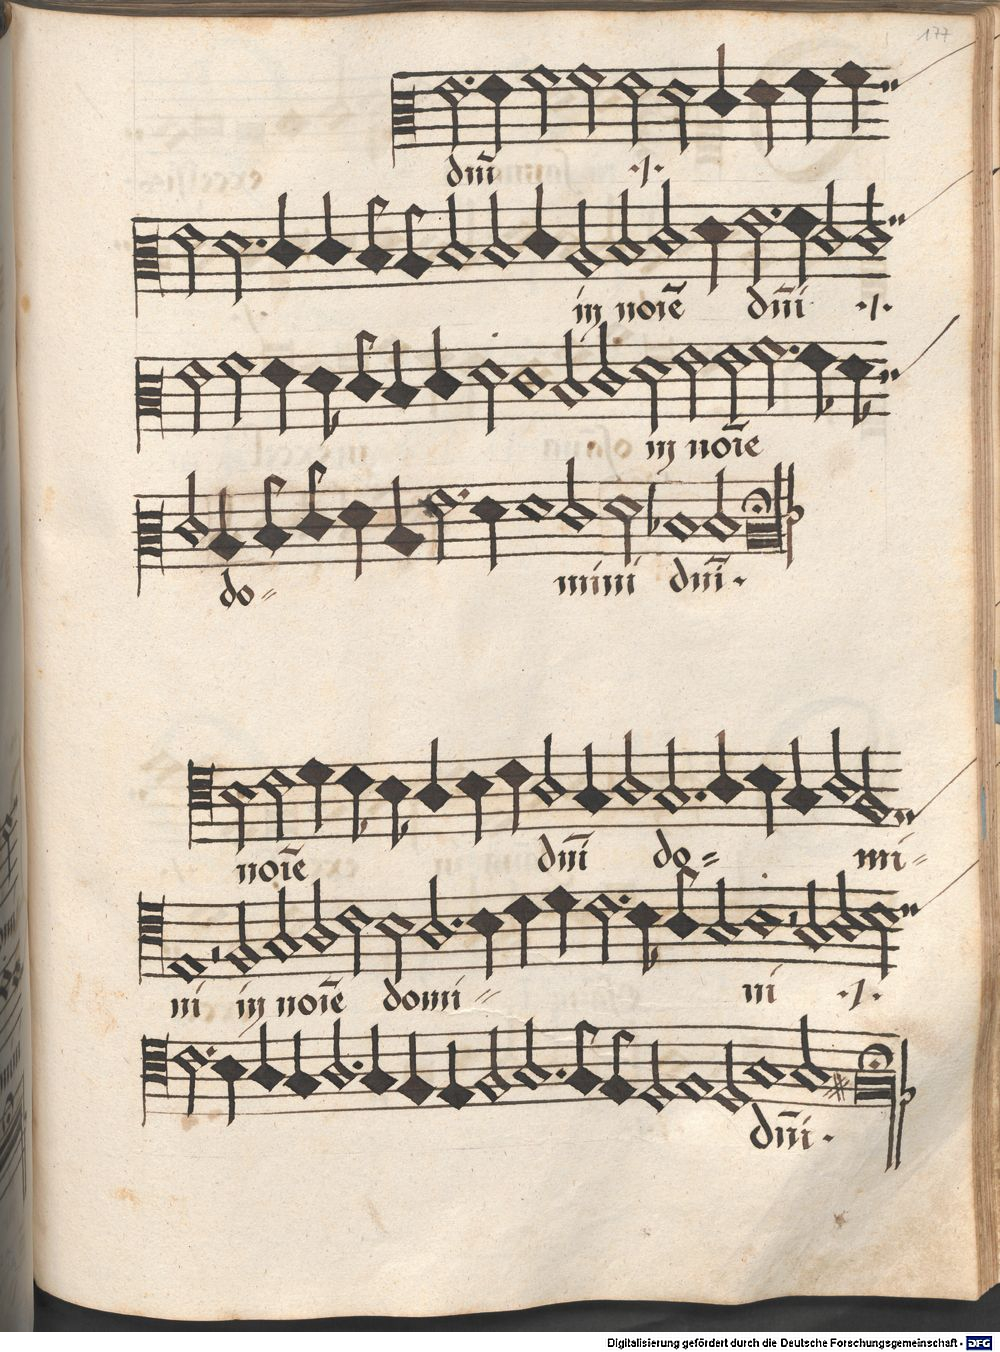 177
dm̄ ·/.
in noīe dm̄i ·/.
in noīe
do= mini dm̄i.
noīe dm̄i do= mi=
ni in noīe domi= ni ·/.
dm̄i.
Digitalisierung gefördert durch die Deutsche Forschungsgemeinschaft - DFG